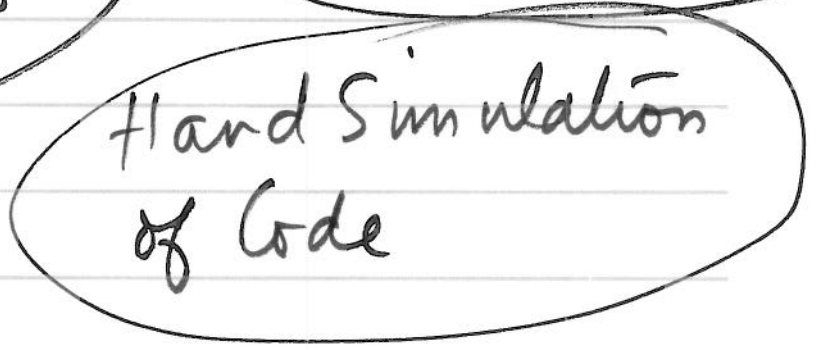 Hand Simulation
of Code